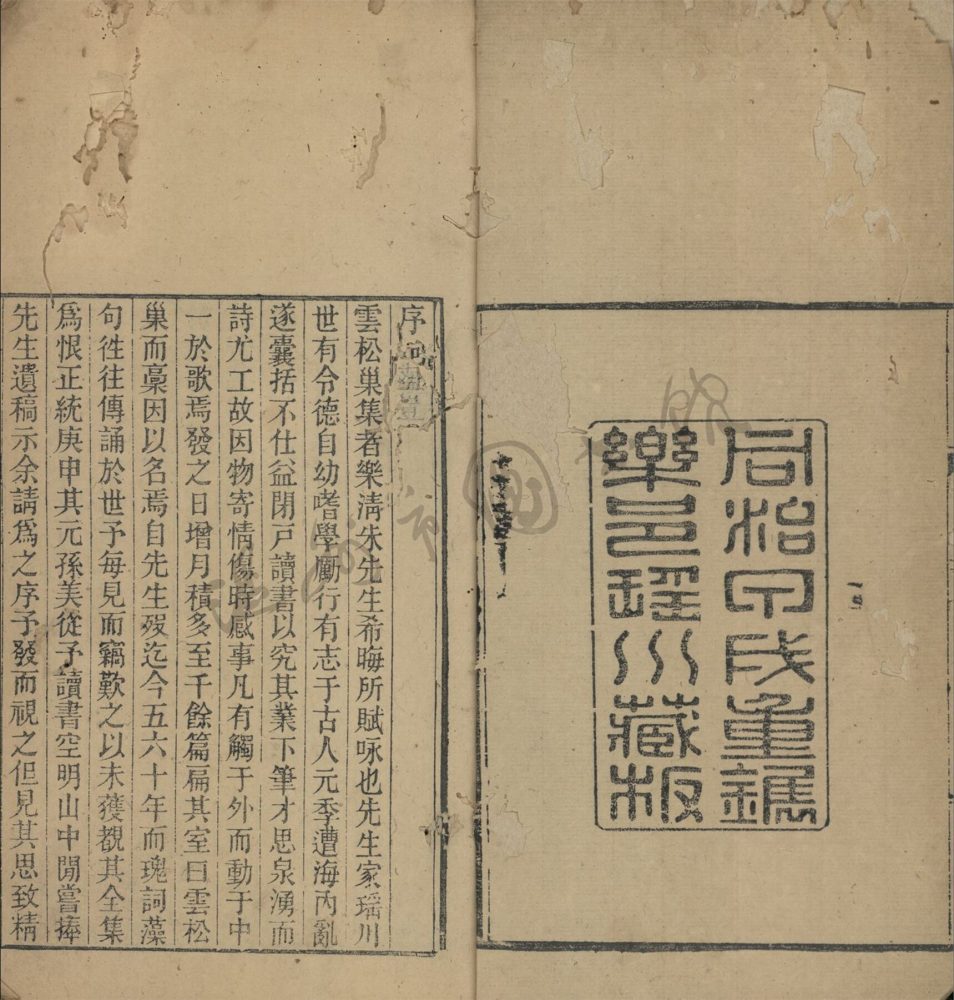 同治甲戌重鐫
樂邑瑶川藏板
序
雲松巢集者樂清朱先生希晦所賦咏也先生家瑶川
世有令德自幼嗜學勵行有志于古人元季遭海内亂
遂囊括不仕益閉戸讀書以究其業下筆才思泉湧而
詩尤工故因物寄情傷時感事凡有觸于外而動于中
一於歌焉發之日增月積多至千餘篇扁其室曰雲松
巢而稾因以名焉自先生殁迄今五六十年而瑰詞藻
句徃徃傳誦於世予每見而竊歎之以未獲覩其全集
爲恨正統庚申其元孫美從予讀書空明山中閒嘗捧
先生遺稿示余請爲之序予發而視之但見其思致精